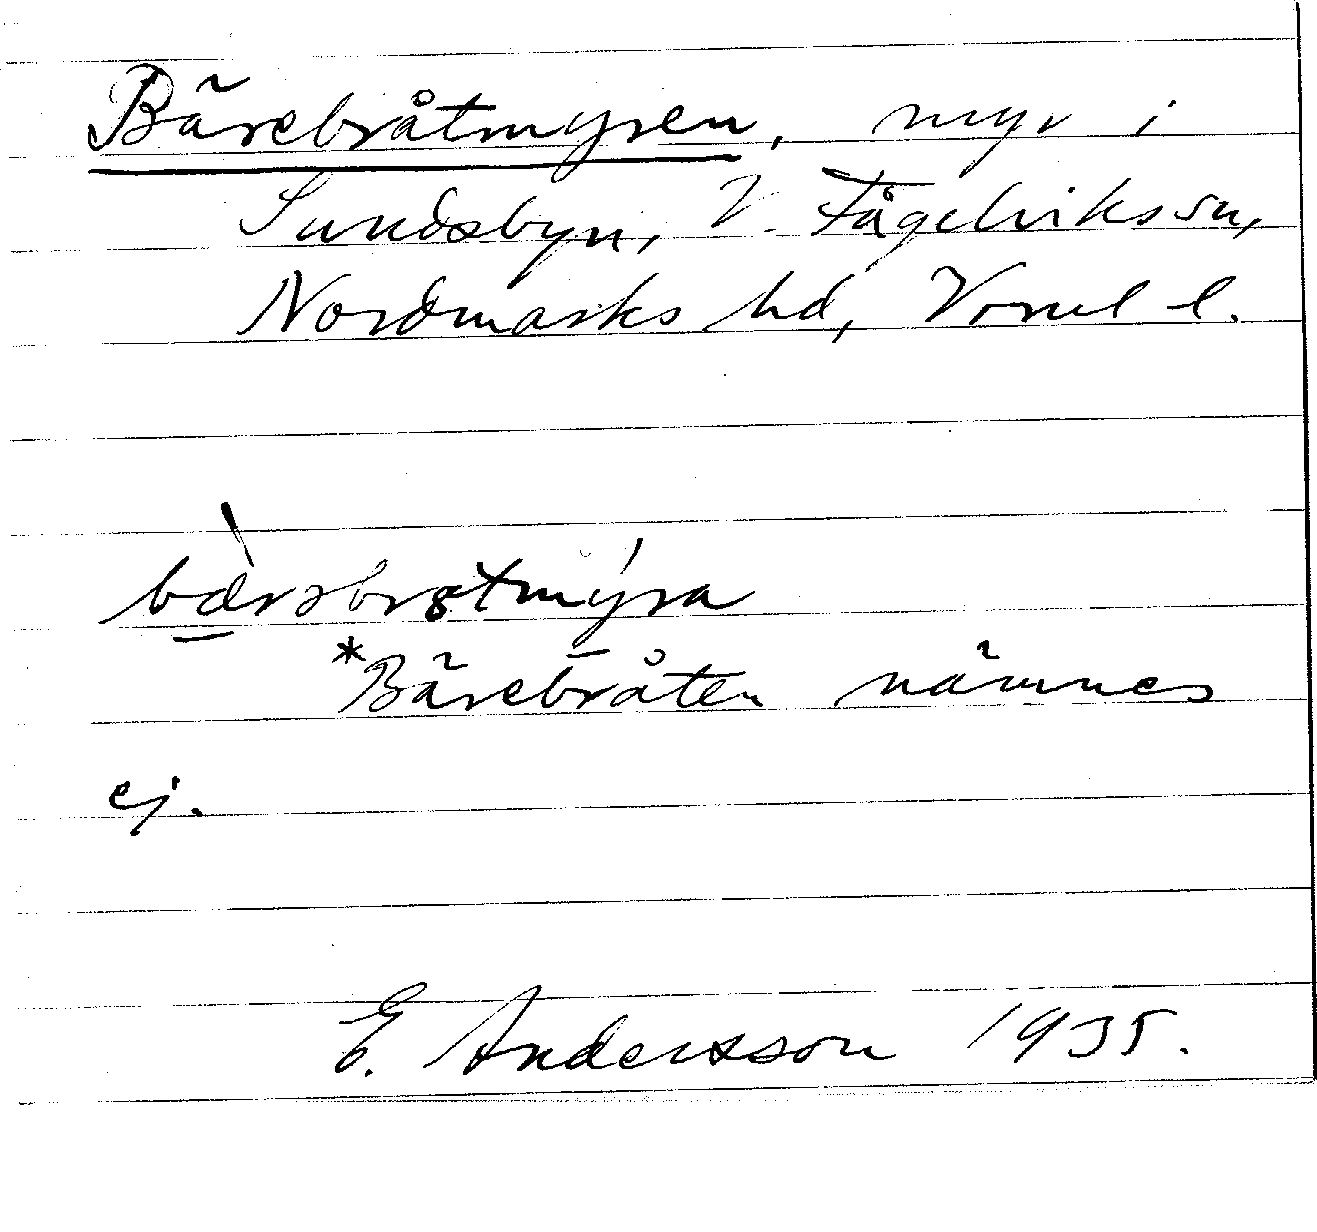 Bärebråtmyren, myr i
Sundsbyn, V. Fågelviks sn,
Nordmarks hd, Vrml l.
bæ̀rəbrɔtmýra
*Bärebråten nämnes
ej.
E. Andersson 1935.